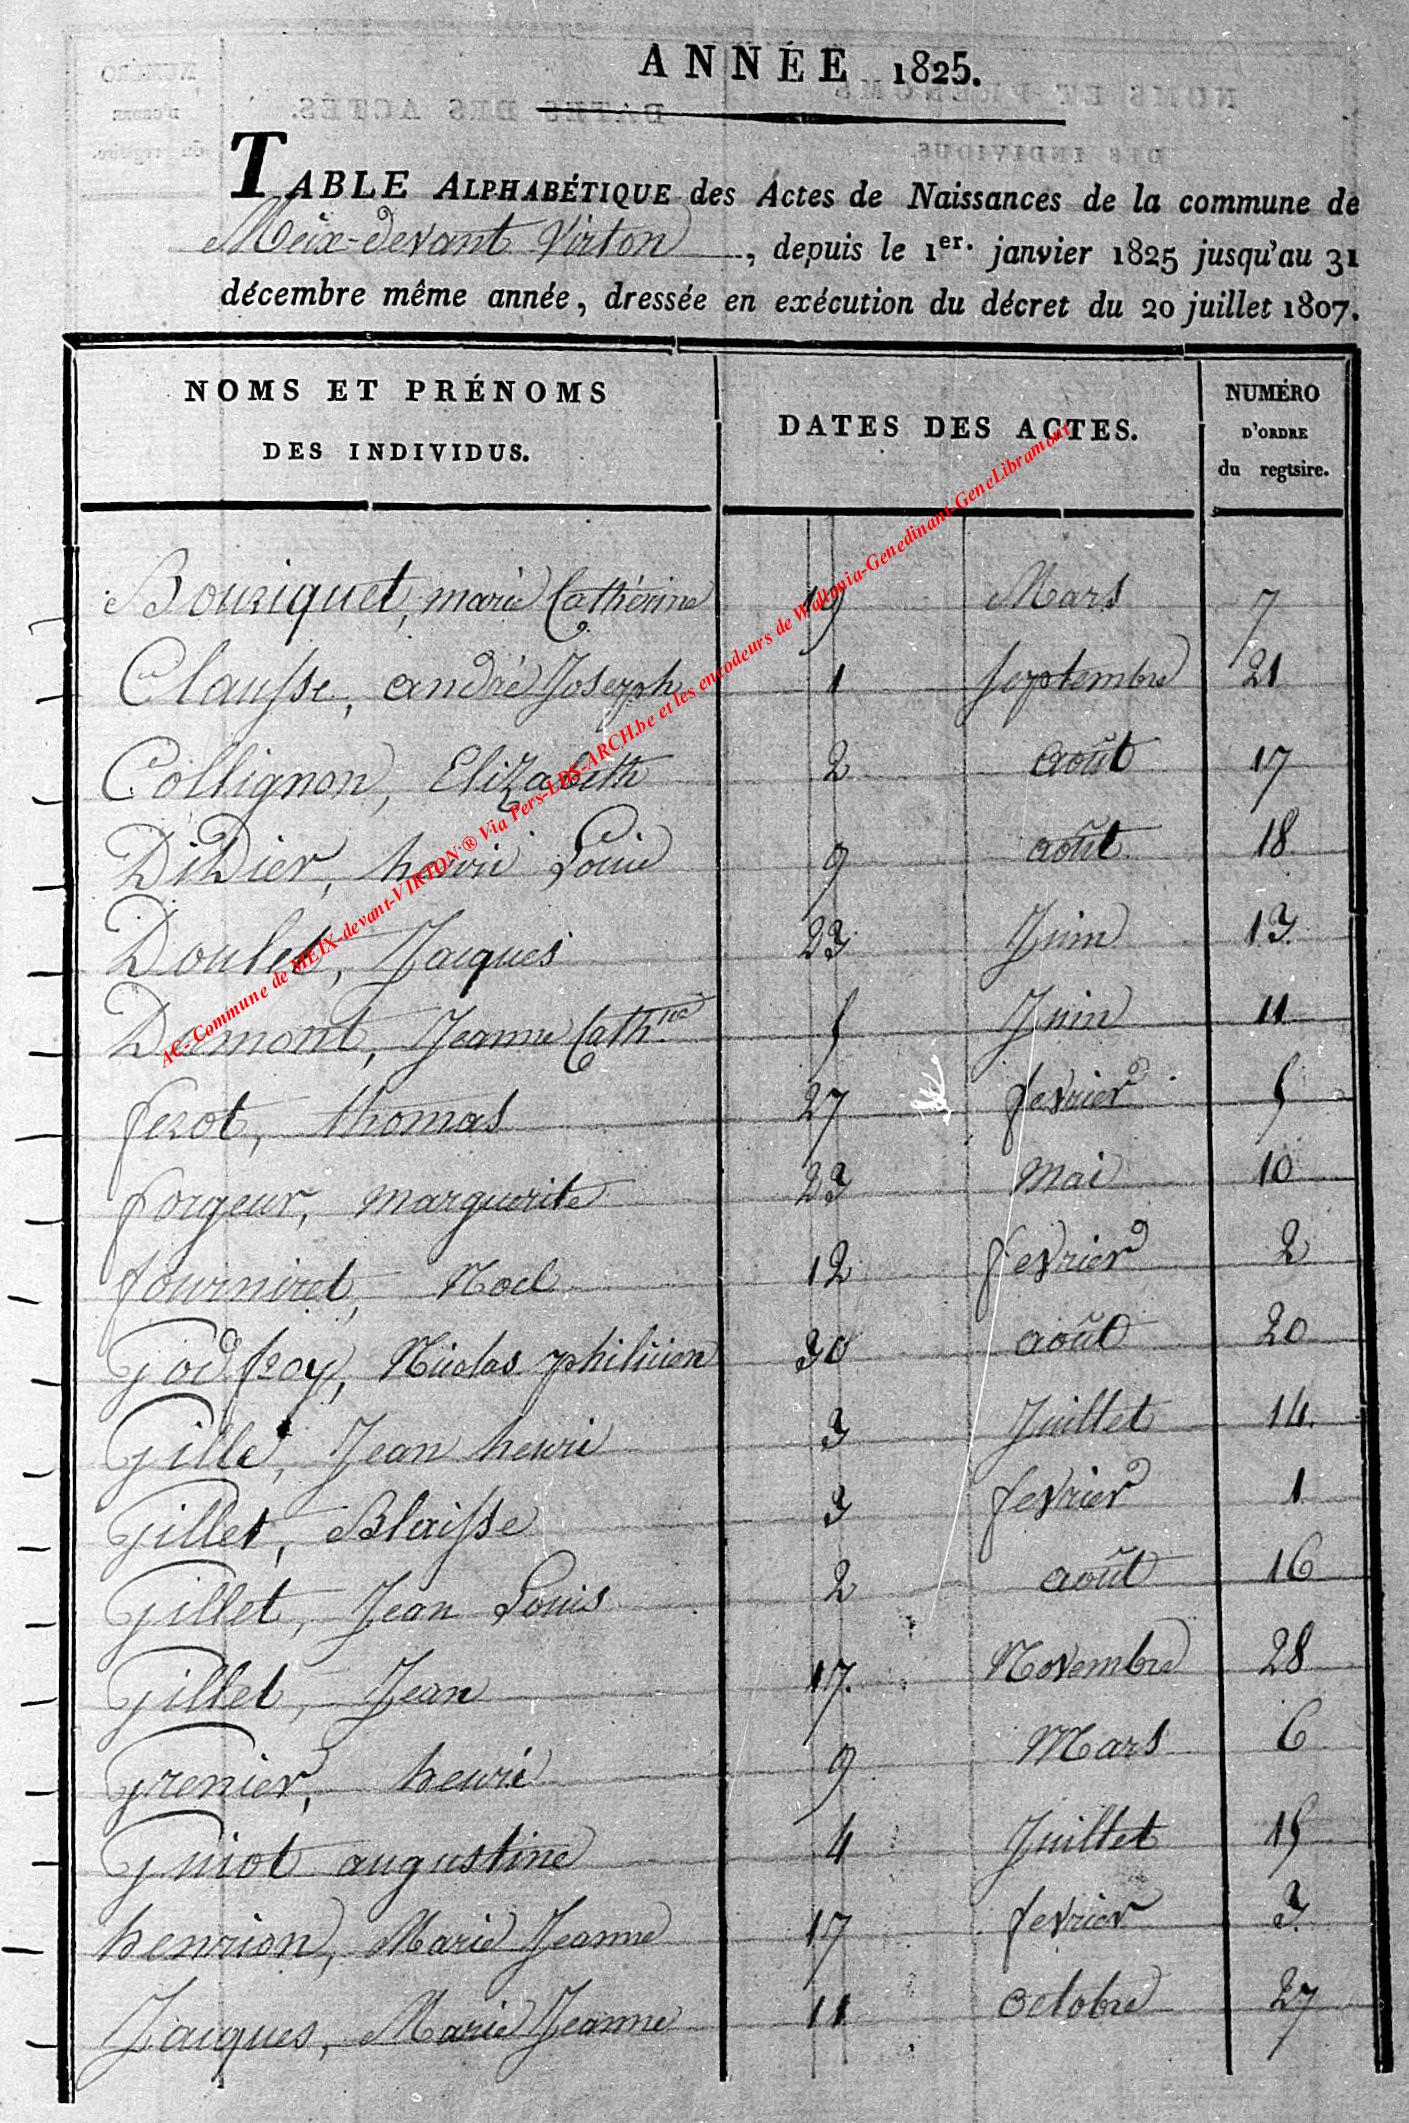 ANNÉE 1825.
TABLE ALPHABÉTIQUE des Actes de Naissances de la commune de
Meix-devant Virton, depuis le 1er. janvier 1825 jusqu'au 31
décembre même année, dressée en exécution du décret du 20 juillet 1807.
NOMS ET PRÉNOMS
DES INDIVIDUS.
DATES DES ACTES.
NUMÉRO
D'ORDRE
du regtsire.
Bouriquet, marie Cathérine 19 Mars 7
Clausse, andré Joseph 1 Septembre 21
Collignon, Elizabeth 2 août 17
Didier, henri Louis 9 août 18
Doulet, Jacques 23 Juin 13
Dermont, Jeanne Cath.ne 5 Juin 11
ferot, thomas 27 fevrier 5
forgeur, marguerite 23 Mai 10
fourniret, Noel 12 fevrier 2
Godfroy, Nicolas philicien 30 août 20
Gille, Jean henri 3 Juillet 14.
Gillet, Blaisse 3 fevrier 1
Gillet, Jean Louis 2 août 16
Gillet, Jean 17. Novembre 28
Grenier, henri 9 Mars 6
Guiot augustine 4 Juillet 15
henrion, Marie Jeanne 17 fevrier 3
Jacques, Marie Jeanne 11 Octobre 27
AC-Commune de MEIX-devant-VIRTON ® Via Pers-LDS-ARCH.be et les encodeurs de Wallonia-Genedinant-GeneLibramont